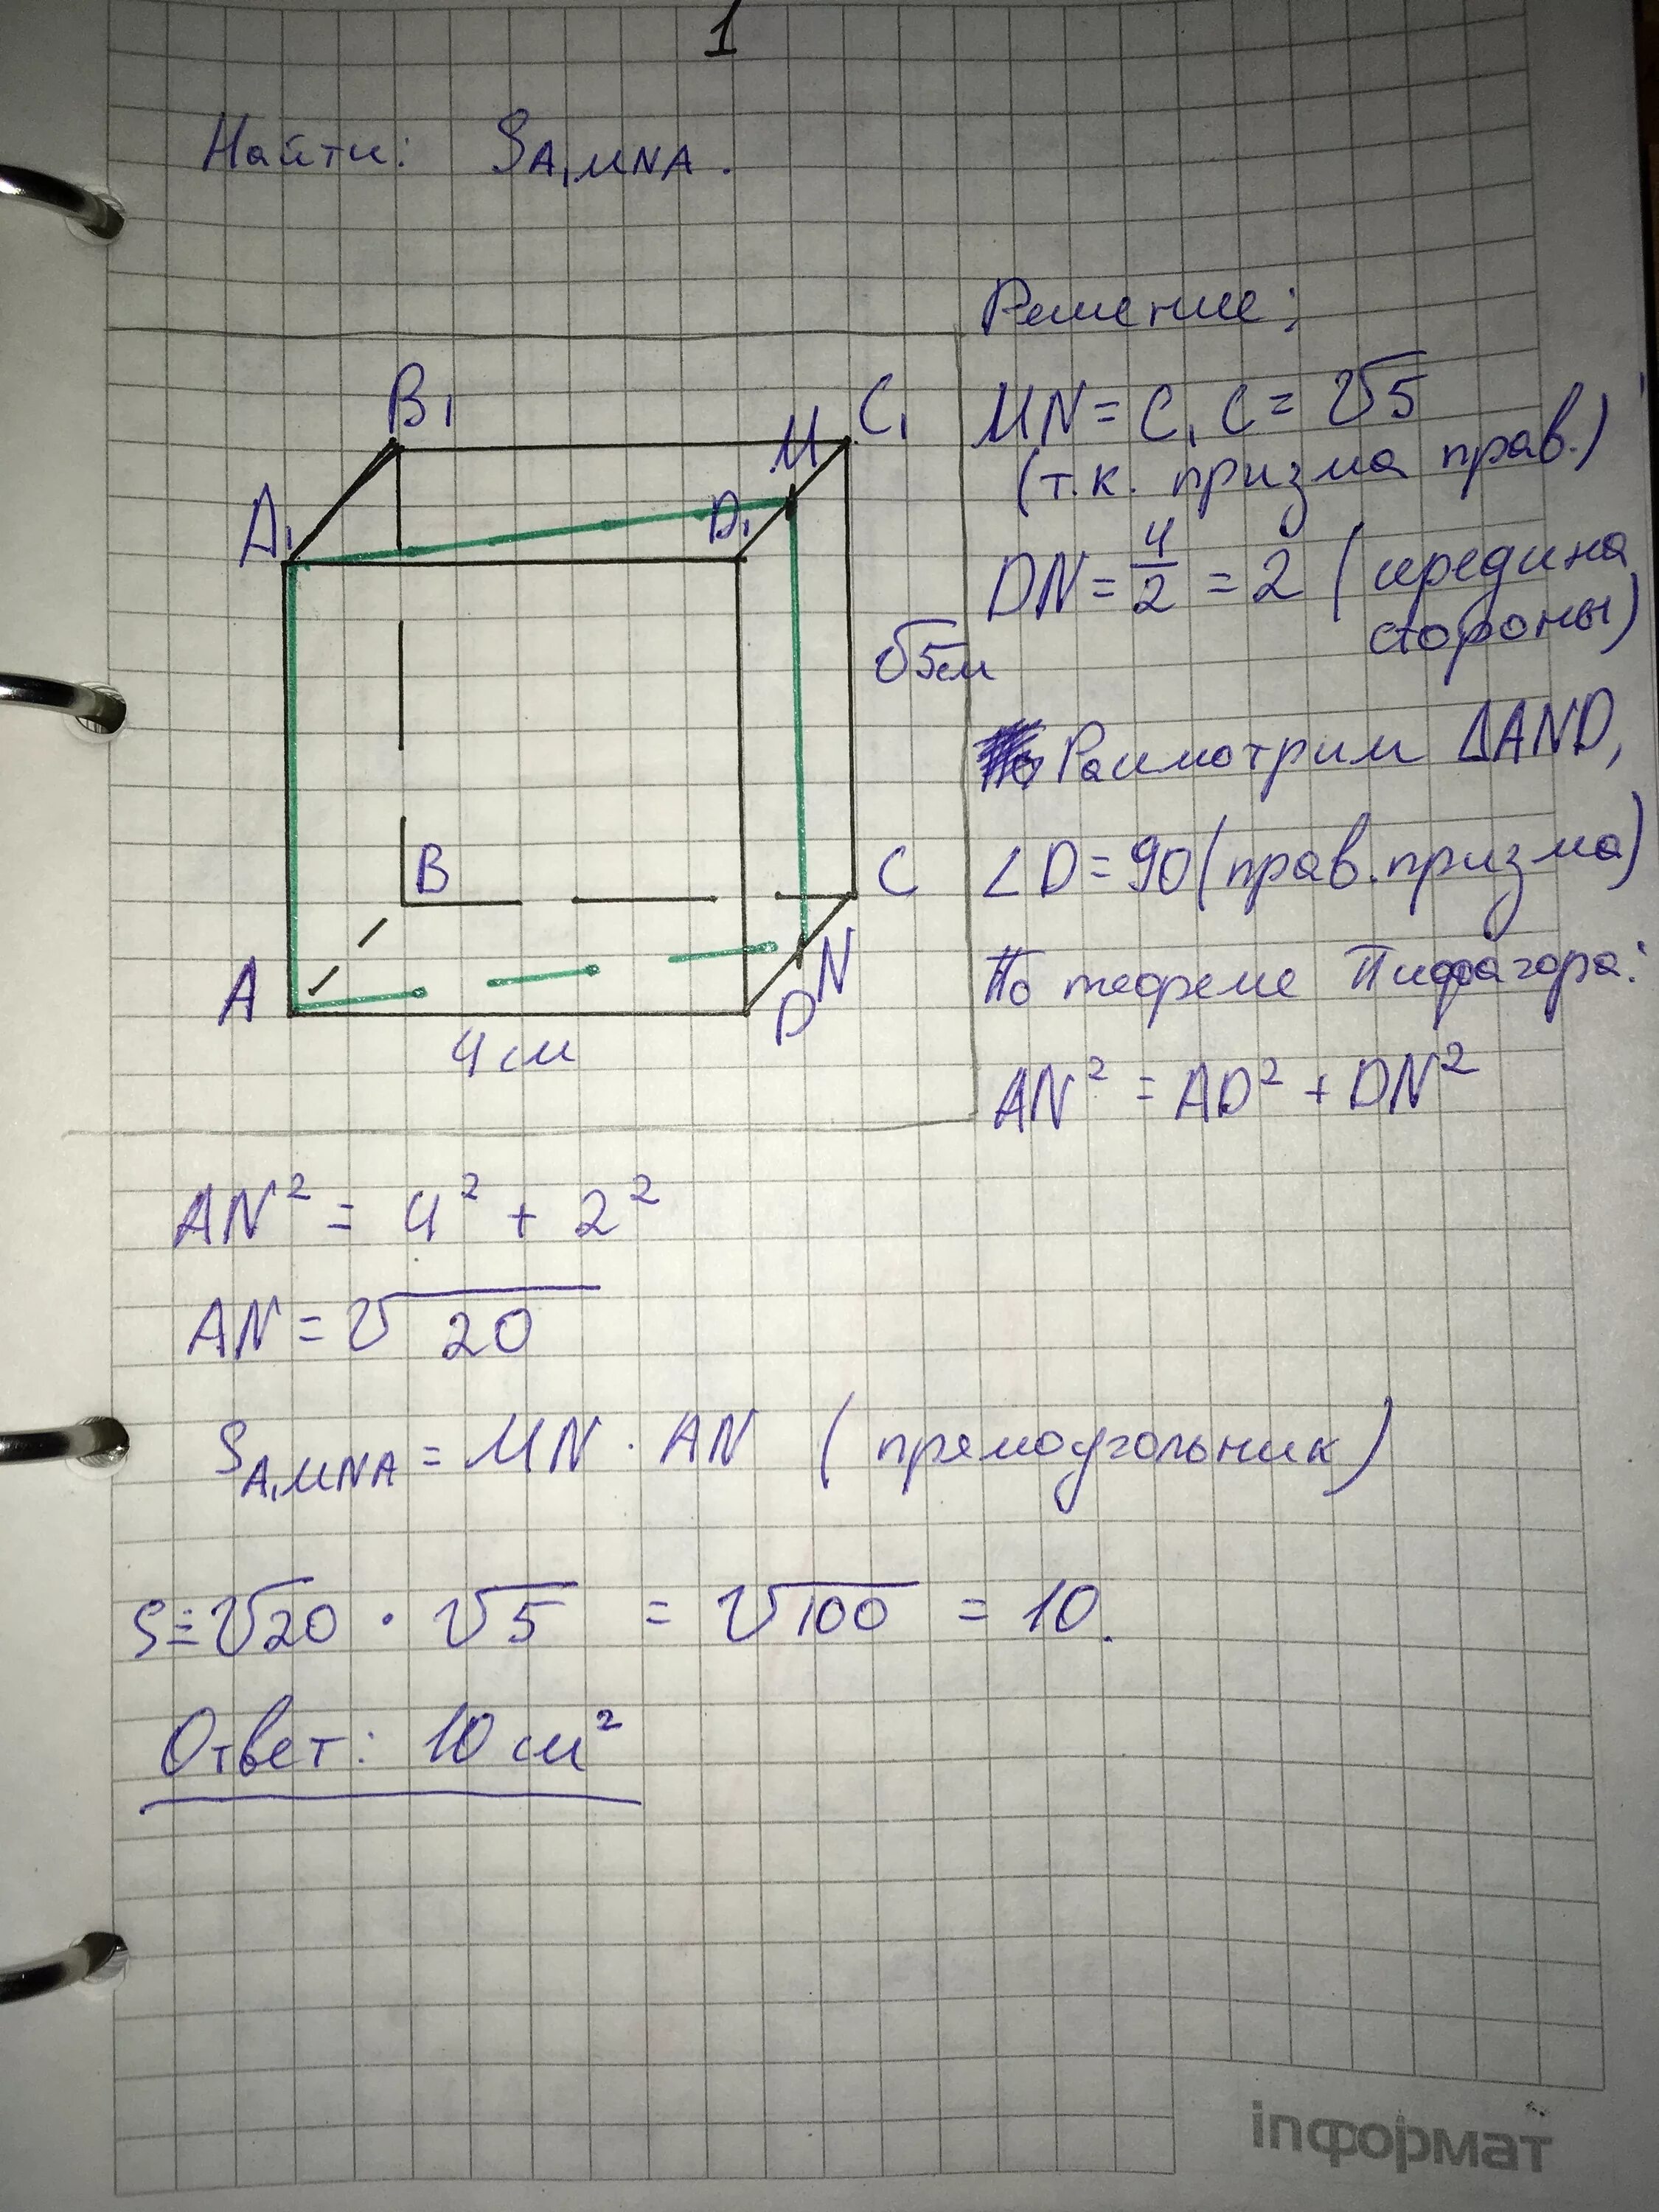 1
Найти: S A₁MNA.
Решение:
B₁
M
C₁
A₁
D₁
MN = C₁C = √5
(т.к. призма прав.)
DN = 4/2 = 2 (середина
стороны)
√5см
Расмотрим ΔAND,
B
C
∠D = 90 (прав. призма)
A
N
D
4 см
По теореме Пифагора:
AN² = AD² + DN²
AN² = 4² + 2²
AN = √20
S A₁MNA = MN · AN (прямоугольник)
S = √20 · √5 = √100 = 10.
Ответ: 10 см²
inформат